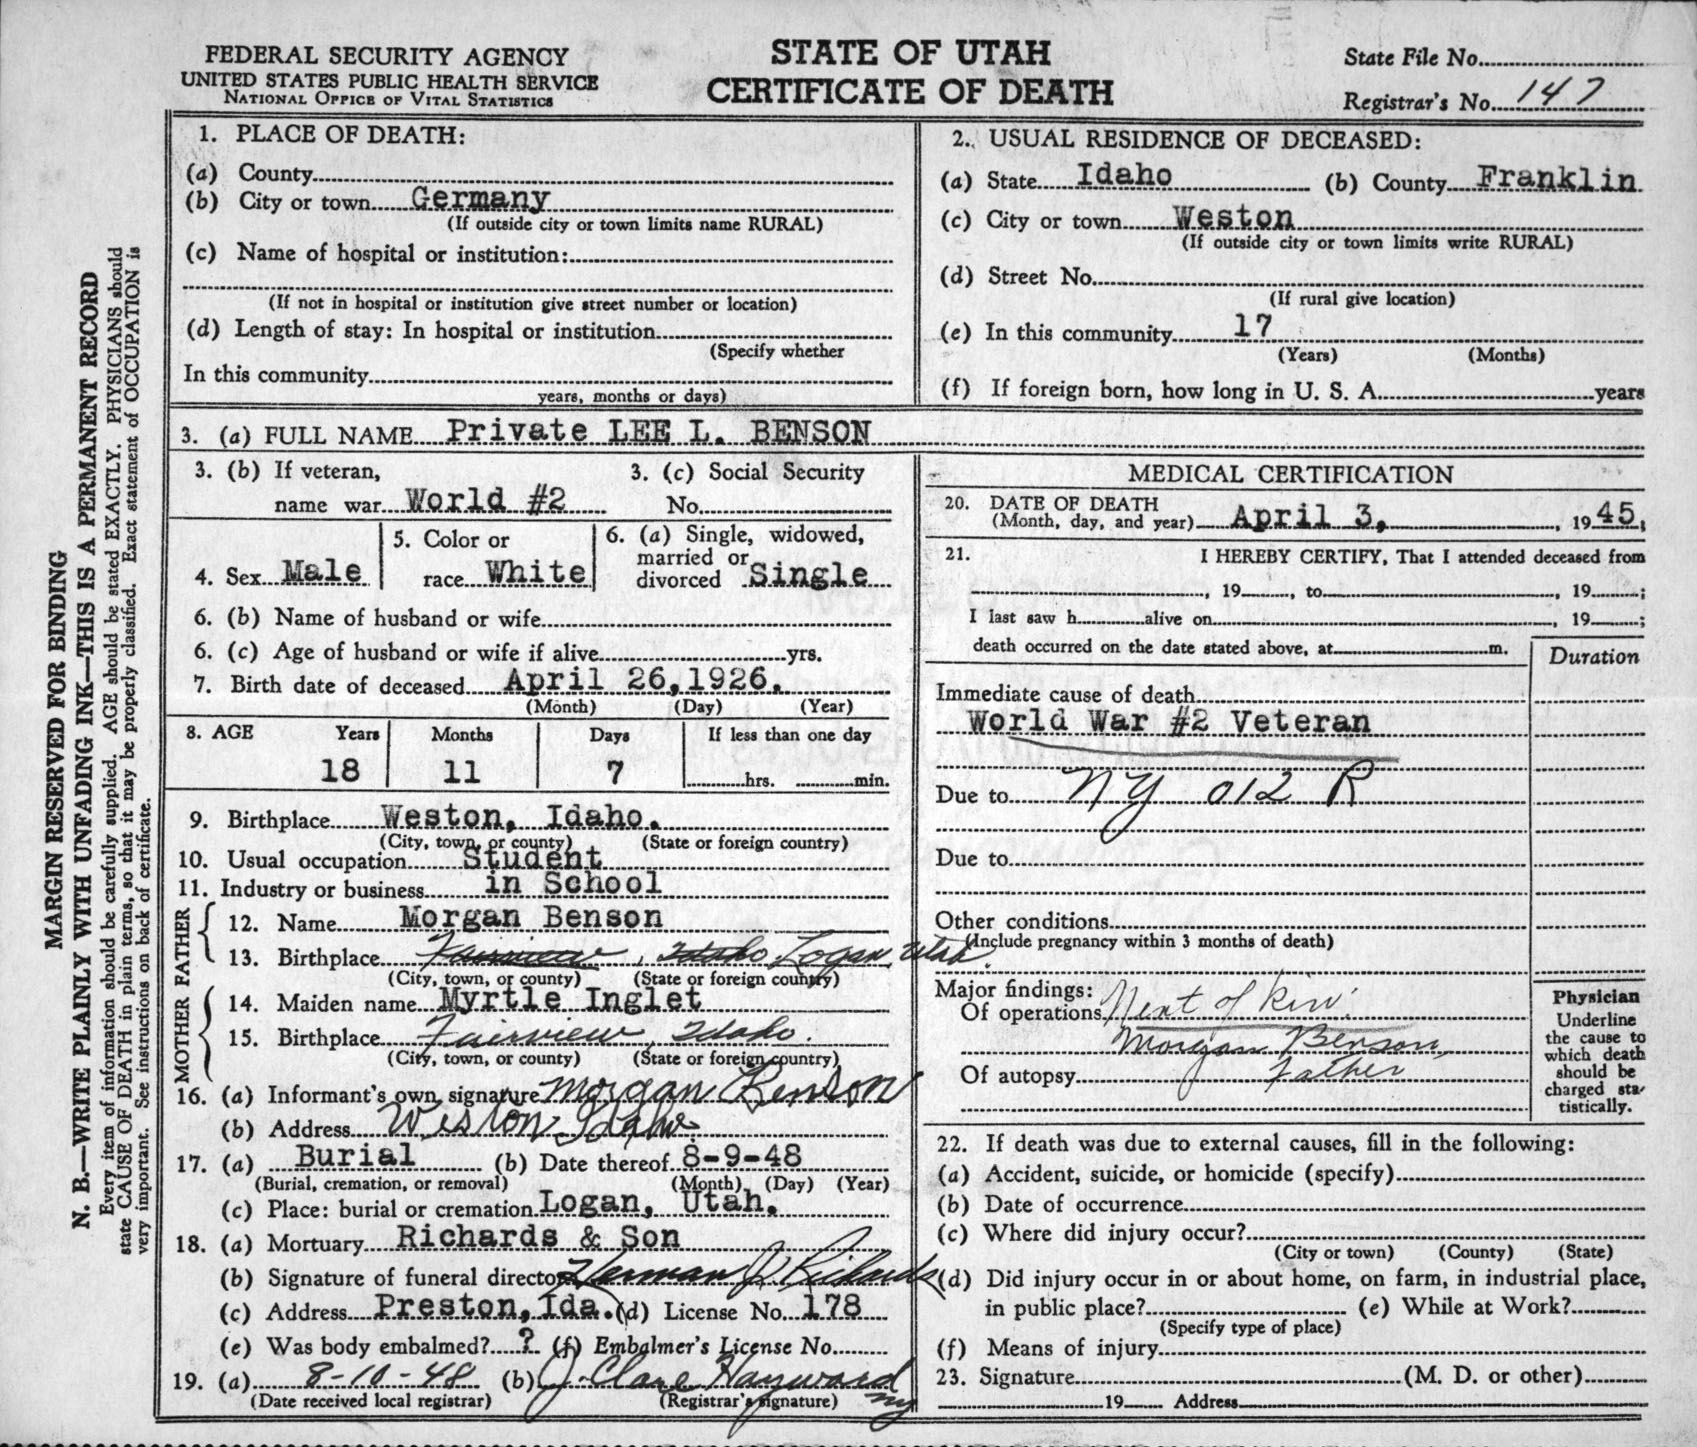 FEDERAL SECURITY AGENCY
UNITED STATES PUBLIC HEALTH SERVICE
NATIONAL OFFICE OF VITAL STATISTICS
STATE OF UTAH
CERTIFICATE OF DEATH
State File No.
Registrar's No. 147
MARGIN RESERVED FOR BINDING
N. B.—WRITE PLAINLY WITH UNFADING INK—THIS IS A PERMANENT RECORD
Every item of information should be carefully supplied. AGE should be stated EXACTLY. PHYSICIANS should
state CAUSE OF DEATH in plain terms, so that it may be properly classified. Exact statement of OCCUPATION is
very important. See instructions on back of certificate.
1. PLACE OF DEATH:
(a) County
(b) City or town Germany
(If outside city or town limits name RURAL)
(c) Name of hospital or institution:
(If not in hospital or institution give street number or location)
(d) Length of stay: In hospital or institution
(Specify whether
In this community
years, months or days)
2. USUAL RESIDENCE OF DECEASED:
(a) State Idaho (b) County Franklin
(c) City or town Weston
(If outside city or town limits write RURAL)
(d) Street No.
(If rural give location)
(e) In this community 17
(Years) (Months)
(f) If foreign born, how long in U. S. A. years
3. (a) FULL NAME Private LEE L. BENSON
3. (b) If veteran,
name war World #2
3. (c) Social Security
No.
4. Sex Male
5. Color or
race White
6. (a) Single, widowed,
married or
divorced Single
6. (b) Name of husband or wife
6. (c) Age of husband or wife if alive yrs.
7. Birth date of deceased April 26,1926.
(Month) (Day) (Year)
8. AGE Years Months Days If less than one day
18 11 7 hrs. min.
9. Birthplace Weston, Idaho.
(City, town, or county) (State or foreign country)
10. Usual occupation Student
11. Industry or business in School
FATHER
12. Name Morgan Benson
13. Birthplace Fairview, Idaho Logan, Utah.
(City, town, or county) (State or foreign country)
MOTHER
14. Maiden name Myrtle Inglet
15. Birthplace Fairview, Idaho.
(City, town, or county) (State or foreign country)
16. (a) Informant's own signature Morgan Benson
(b) Address Weston Idaho.
17. (a) Burial (b) Date thereof 8-9-48
(Burial, cremation, or removal) (Month) (Day) (Year)
(c) Place: burial or cremation Logan, Utah.
18. (a) Mortuary Richards & Son
(b) Signature of funeral director Herman J Richards
(c) Address Preston, Ida. (d) License No. 178
(e) Was body embalmed? ? (f) Embalmer's License No.
19. (a) 8-10-48 (b) J. Clare Hayward
(Date received local registrar) (Registrar's signature) my
MEDICAL CERTIFICATION
20. DATE OF DEATH
(Month, day, and year) April 3, , 19 45,
21. I HEREBY CERTIFY, That I attended deceased from
, 19 , to , 19 ;
I last saw h alive on , 19 ;
death occurred on the date stated above, at m.
Duration
Immediate cause of death
World War #2 Veteran
Due to NY 012 R
Due to
Other conditions
(Include pregnancy within 3 months of death)
Major findings:
Of operations Next of Kin:
Morgan Benson,
Of autopsy Father
Physician
Underline
the cause to
which death
should be
charged sta-
tistically.
22. If death was due to external causes, fill in the following:
(a) Accident, suicide, or homicide (specify)
(b) Date of occurrence
(c) Where did injury occur?
(City or town) (County) (State)
(d) Did injury occur in or about home, on farm, in industrial place,
in public place? (e) While at Work?
(Specify type of place)
(f) Means of injury
23. Signature (M. D. or other)
19 Address